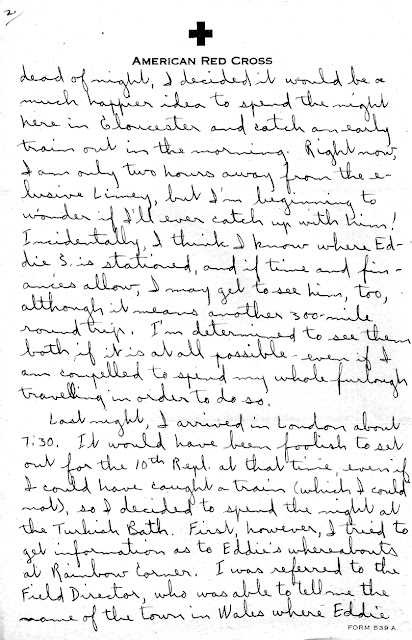 2
AMERICAN RED CROSS
dead of night, I decided it would be a
much happier idea to spend the night
here in Gloucester and catch an early
train out in the morning. Right now,
I am only two hours away from the e-
lusive Limey, but I'm beginning to
wonder if I'll ever catch up with him!
Incidentally, I think I know where Ed-
die S. is stationed, and if time and fin-
ances allow, I may get to see him, too,
although it means another 300-mile
round trip. I'm determined to see them
both if it is at all possible - even if I
am compelled to spend my whole furlough
travelling in order to do so.
Last night, I arrived in London about
7:30. It would have been foolish to set
out for the 10th Repl. at that time, even if
I could have caught a train (which I could
not), so I decided to spend the night at
the Turkish Bath. First, however, I tried to
get information as to Eddie's whereabouts
at Rainbow Corner. I was referred to the
Field Director, who was able to tell me the
name of the town in Wales where Eddie
FORM 539 A